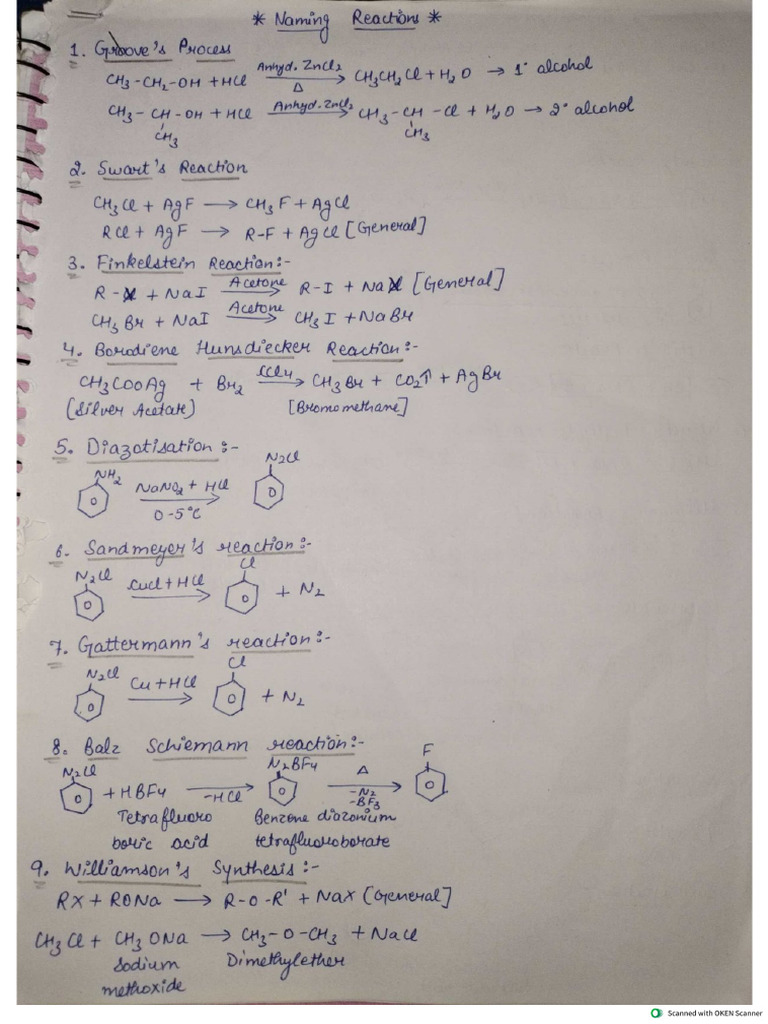 * Naming Reactions *
1. Groove's Process
CH3-CH2-OH + HCl Anhyd. ZnCl2 Δ → CH3CH2Cl + H2O → 1° alcohol
CH3-CH-OH + HCl Anhyd. ZnCl2 → CH3-CH-Cl + H2O → 2° alcohol
CH3 CH3
2. Swart's Reaction
CH3Cl + AgF → CH3F + AgCl
RCl + AgF → R-F + AgCl [General]
3. Finkelstein Reaction:-
R-X + NaI Acetone → R-I + NaX [General]
CH3Br + NaI Acetone → CH3I + NaBr
4. Borodiene Hunsdiecker Reaction:-
CH3COOAg + Br2 CCl4 → CH3Br + CO2↑ + AgBr
(Silver Acetate) [Bromomethane]
5. Diazotisation:-
NH2 NaNO2 + HCl 0-5°C → N2Cl
6. Sandmeyer's reaction:-
N2Cl CuCl + HCl → Cl + N2
7. Gattermann's reaction:-
N2Cl Cu + HCl → Cl + N2
8. Balz Schiemann reaction:-
N2Cl + HBF4 -HCl → N2BF4 Δ -N2 -BF3 → F
Tetrafluoro Benzene diazonium
boric acid tetrafluoroborate
9. Williamson's Synthesis:-
RX + RONa → R-O-R' + NaX [General]
CH3Cl + CH3ONa → CH3-O-CH3 + NaCl
Sodium Dimethylether
methoxide
Scanned with OKEN Scanner